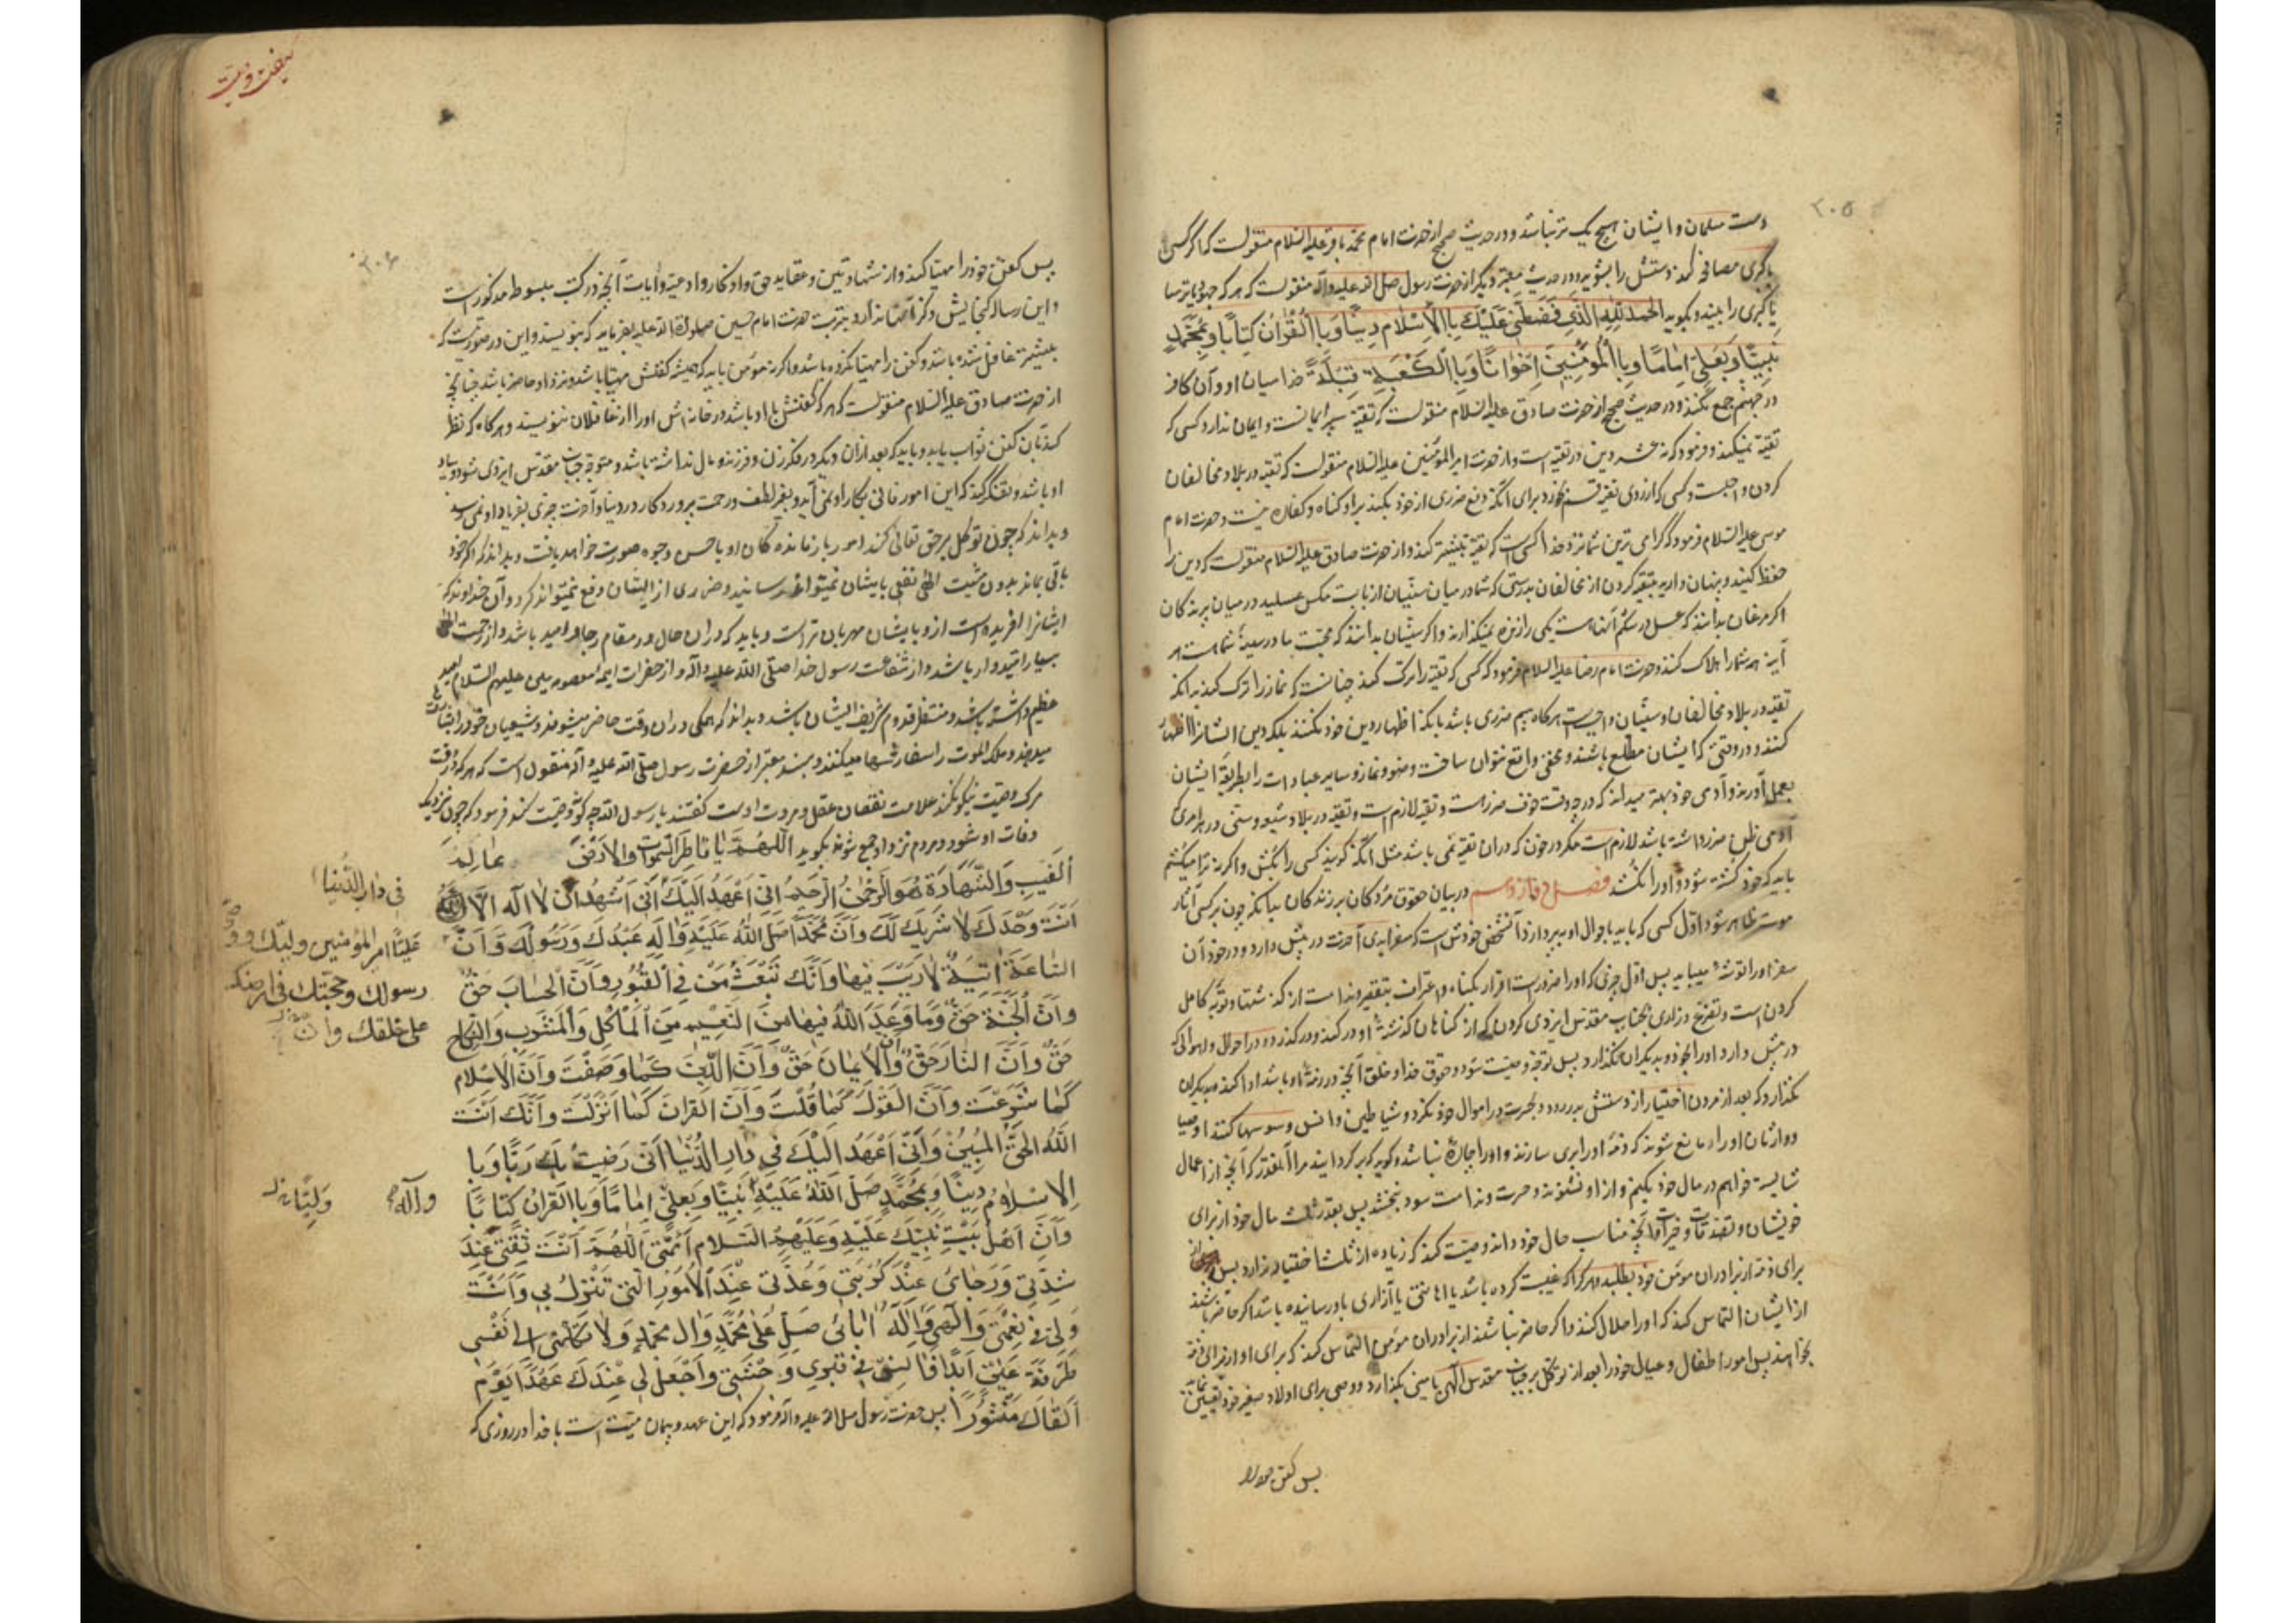 ۲۰۵
دست مسلمان و ایشان هیچ یک تر نباشد و در حدیث صحیح از حضرت امام محمد باقر علیه السلام منقولست که اگر کسی
با گبری مصافحه کند دستش را بشوید و در حدیث معتبر دیگر از حضرت رسول صلی الله علیه وآله منقولست که هر که جهودی یا ترسا
یا گبری را ببیند و بگوید الحمد لله الذی فضلنی علیک بالاسلام دینًا وبالقران کتابًا وبمحمد
نبیًا وبعلی امامًا وبالمؤمنین اخوانًا وبالکعبة قبلةً خدا میان او و آن کافر
در جهنم جمع نکند و در حدیث صحیح از حضرت صادق علیه السلام منقولست که تقیه سپر ایمانست و ایمان ندارد کسی که
تقیه نمیکند و فرمود که نه عشر دین در تقیه است و از حضرت امیر المؤمنین علیه السلام منقولست که تقیه در بلاد مخالفان
کردن واجبست و کسی که از روی تقیه قسم خورد برای آنکه دفع ضرری از خود بکند بر او گناه و کفاره نیست و حضرت امام
موسی علیه السلام فرمود که گرامی ترین شما نزد خدا کسی است که تقیه بیشتر کند و از حضرت صادق علیه السلام منقولست که دین را
حفظ کنید و پنهان دارید بتقیه کردن از مخالفان بدرستی که شما در میان سنیان از بابت مگس عسلید در میان پرندگان
اگر مرغان بدانند که عسل در شکم آنهاست یکی را زنده نمیگذارند و اگر سنیان بدانند که محبت ما در سینهٔ شماست هر
آینه همه شما را هلاک کنند و حضرت امام رضا علیه السلام فرمود که کسی که تقیه را ترک کند چنانست که نماز را ترک کند بدانکه
تقیه در بلاد مخالفان و سنیان واجبست هرگاه بیم ضرری باشد بآنکه اظهار دین خود نکنند بلکه دین ایشانرا اظهار
کنند و در وقتی که ایشان مطلع باشند و مخفی واقع نتوان ساخت وضو و نماز و سایر عبادات را بطریقهٔ ایشان
بعمل آورند و آدمی خود بهتر میداند که در چه وقت خوف ضرر است و تقیه لازمست و تقیه در بلاد شیعه و سنی در هر امری
آدمی ظن ضرر داشته باشد لازمست مگر در خون که در آن تقیه نمی باشد مثل آنکه گویند کسی را بکش و اگر نه ترا میکشم
باید که خود کشته شود و او را نکشد فصل دوازدهم در بیان حقوق مردگان بر زندگان بدانکه چون بر کسی آثار
موت ظاهر شود اول کسی که باید باحوال او بپردازد آن شخص خودش است که سفر ابدی آخرت در پیش دارد و در خور آن
سفر او را توشه میباید پس اول چیزی که او را ضرور است اقرار بگناه و اعتراف بتقصیر و ندامت از گذشتها و توبهٔ کامل
کردنست و تضرع و زاری بجناب مقدس ایزدی کردن که از گناهان گذشتهٔ او در گذرد و در احوال و اهوالی که
در پیش دارد او را بخود و بدیگران نگذارد پس توجه وصیت شود و حقوق خدا و خلق آنچه در ذمهٔ او باشد ادا کند و بدیگران
نگذارد که بعد از مردن اختیار از دستش بدر رود و بحسرت در اموال خود نگرد و شیاطین جن و انس وسوسها کنند اوصیا
و وارثان او را و مانع شوند که ذمهٔ او را بری سازند و او را چاره نباشد و گوید که برگردانید مرا آنقدر که آنچه از اعمال
شایسته خواهم در مال خود بکنم و از او نشنوند و حسرت و ندامت سود نبخشد پس بقدر ثلث مال خود از برای
خویشان و تصدقات و خیرات آنچه مناسب حال خود داند وصیت کند که زیاده از ثلث اختیار ندارد پس
برای ذمه از برادران مومن خود بطلبد و هر کرا که غیبت کرده باشد یا اهانتی یا آزاری باو رسانیده باشد اگر حاضر باشند
از ایشان التماس کند که او را حلال کنند و اگر حاضر نباشند از برادران مومن التماس کند که برای او از برای ذمه
بخواهند پس امور اطفال و عیال خود را بعد از توکل بر جناب مقدس آلهی بامینی بگذارد و وصی برای اولاد صغیر خود تعیین نماید
پس کفن خود را
۲۰۶
پس کفن خود را مهیا کند و از شهادتین و عقاید حق و اذکار و ادعیه و ایات آنچه در کتب مبسوط مذکور است
و این رساله گنجایش ذکر آنها ندارد بتربت حضرت امام حسین صلوات الله علیه بفرماید که بنویسند و این در صورتیست که
پیشتر غافل شده باشد و کفن را مهیا نکرده باشد و اگر نه مؤمن باید که همیشه کفنش مهیا باشد و نزد او حاضر باشد چنانچه
از حضرت صادق علیه السلام منقولست که هر که کفنش با او باشد در خانه اش او را از غافلان ننویسند و هرگاه که نظر
کند بآن کفن ثواب یابد و باید که بعد از آن دیگر در فکر زن و فرزند و مال نداشته باشد و متوجه جناب مقدس ایزدی شود و بیاد
او باشد و تفکر کند که این امور فانی بکار او نمی آید و بغیر لطف و رحمت پروردگار در دنیا و آخرت چیزی بفریاد او نمیرسد
و بداند که چون توکل بر حق تعالی کند امور بازماندگان او باحسن وجوه صورت خواهد یافت و بداند که اگر خود
باقی بماند بدون مشیت الهی نفعی بایشان نمیتواند رسانید و ضرری از ایشان دفع نمیتواند کرد و آن خداوندی که
ایشانرا افریده است از و بایشان مهربان تر است و باید که در ان حال در مقام رجا و امید باشد و از رحمت الهی
بسیار امیدوار باشد و از شفاعت رسول خدا صلی الله علیه وآله و از حضرات ایمهٔ معصومین علیهم السلام امید
عظیم داشته باشد و منتظر قدوم شریف ایشان باشد و بداند که همگی در ان وقت حاضر میشوند و شیعیان خود را بشارت
میدهند و ملک الموت را سفارشها میکنند و بسند معتبر از حضرت رسول صلی الله علیه وآله منقول است که هر که در وقت
مرگ وصیت نیکو نکند علامت نقصان عقل و مروت اوست گفتند یا رسول الله چگونه وصیت کند فرمود که چون نزدیک
وفات او شود و مردم نزد او جمع شوند بگوید اللهم یا فاطر السموات والارض عالم
الغیب والشهادة هو الرحمن الرحیم انی اعهد الیک انی اشهد ان لا اله الا الله
انت وحدک لا شریک لک وان محمدًا صلی الله علیه واله عبدک ورسولک وان
الساعة اتیة لا ریب فیها وانک تبعث من فی القبور وان الحساب حق
وان الجنة حق وما وعد الله فیها من النعیم من المأکل والمشرب والنکاح
حق وان النار حق وان الایمان حق وان الدین کما وصفت وان الاسلام
کما شرعت وان القول کما قلت وان القران کما انزلت وانک انت
الله الحق المبین وانی اعهد الیک فی دار الدنیا انی رضیت بک ربًا وبا
الاسلام دینًا وبمحمد صلی الله علیه نبیًا وبعلی امامًا وبالقران کتابًا
وان اهل بیت نبیک علیه وعلیهم السلام ائمتی اللهم انت ثقتی عند
شدتی ورجائی عند کربتی وعدتی عند الامور التی تنزل بی وانت
ولی فی نعمتی والهی واله ابائی صل علی محمد وال محمد ولا تکلنی الی نفسی
طرفة عین ابدًا فانس فی قبری وحشتی واجعل لی عندک عهدًا یوم
القاک منشورًا پس حضرت رسول صلی الله علیه وآله فرمود که این عهد و پیمان میت است با خدا در روزی که
فی دار الدنیا
علیًا امیر المؤمنین ولیک و
رسولک وحجتک فی ارضک
علی خلقک وان
وآله
ولیًا